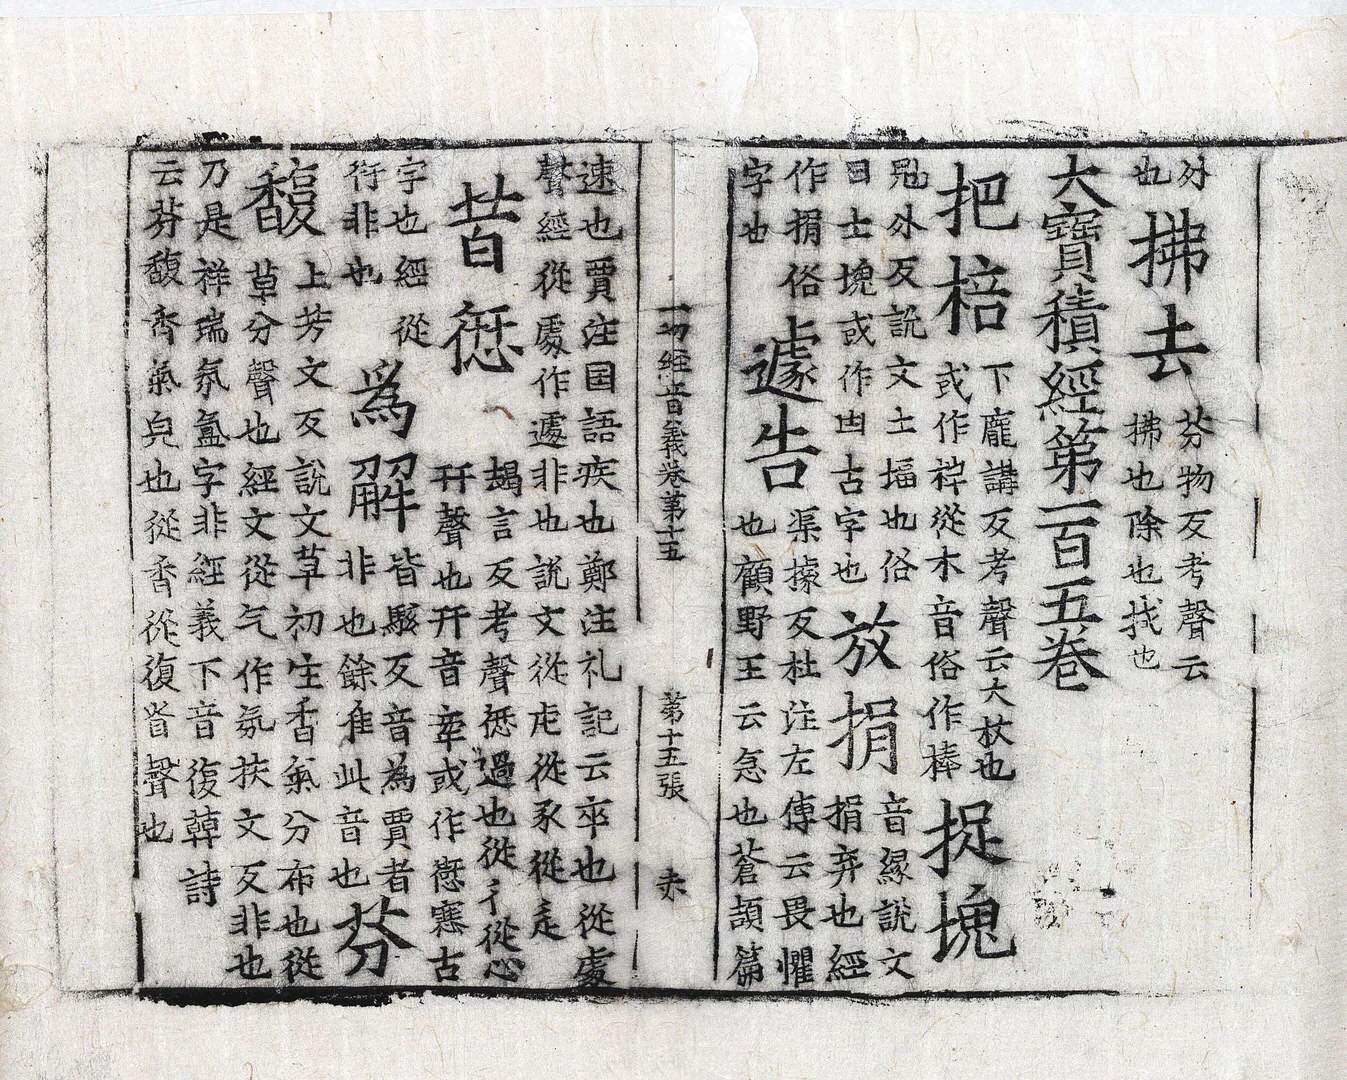 外
也
拂去
芬物反考聲云
拂也除也找也
大寶積經第一百五卷
把棓
下龐講反考聲云大杖也
或作𣘚從木音俗作棒
捉塊
冠外反說文土塸也俗
曰土塊或作凷古字也
放捐
音緣說文
捐弃也經
作捐俗
字也
遽告
渠據反杜注左傳云畏懼
也顧野王云急也蒼頡篇
一切經音義卷第十五
第十五張
速也賈注国語疾也鄭注礼記云卒也從處
聲經從處作遽非也說文從虍從豕從辵
昔愆
朅言反考聲愆過也從彳從心
幵聲也幵音牽或作𠎝寋古
字也經從
衍非也
為解
皆駭反音為賈者
非也餘准此音也
芬
馥
上芳文反說文草初生香氣分布也從
草分聲也經文從气作氛扶文反非也
乃是祥瑞氛氳字非經義下音復韓詩
云芬馥香氣皃也從香從復省聲也